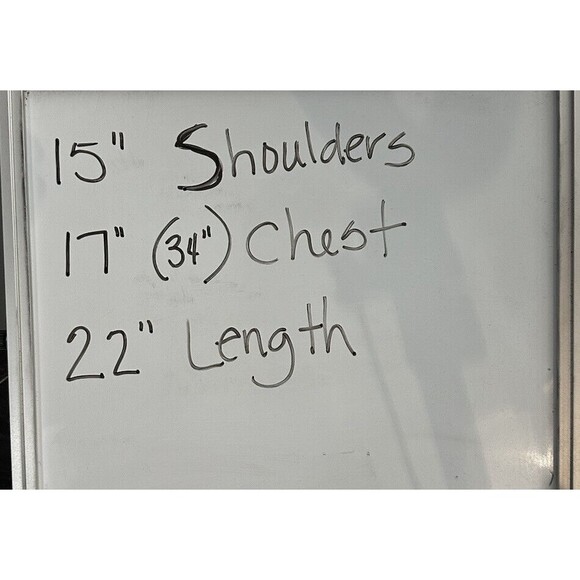 15" Shoulders
17" (34") Chest
22" Length